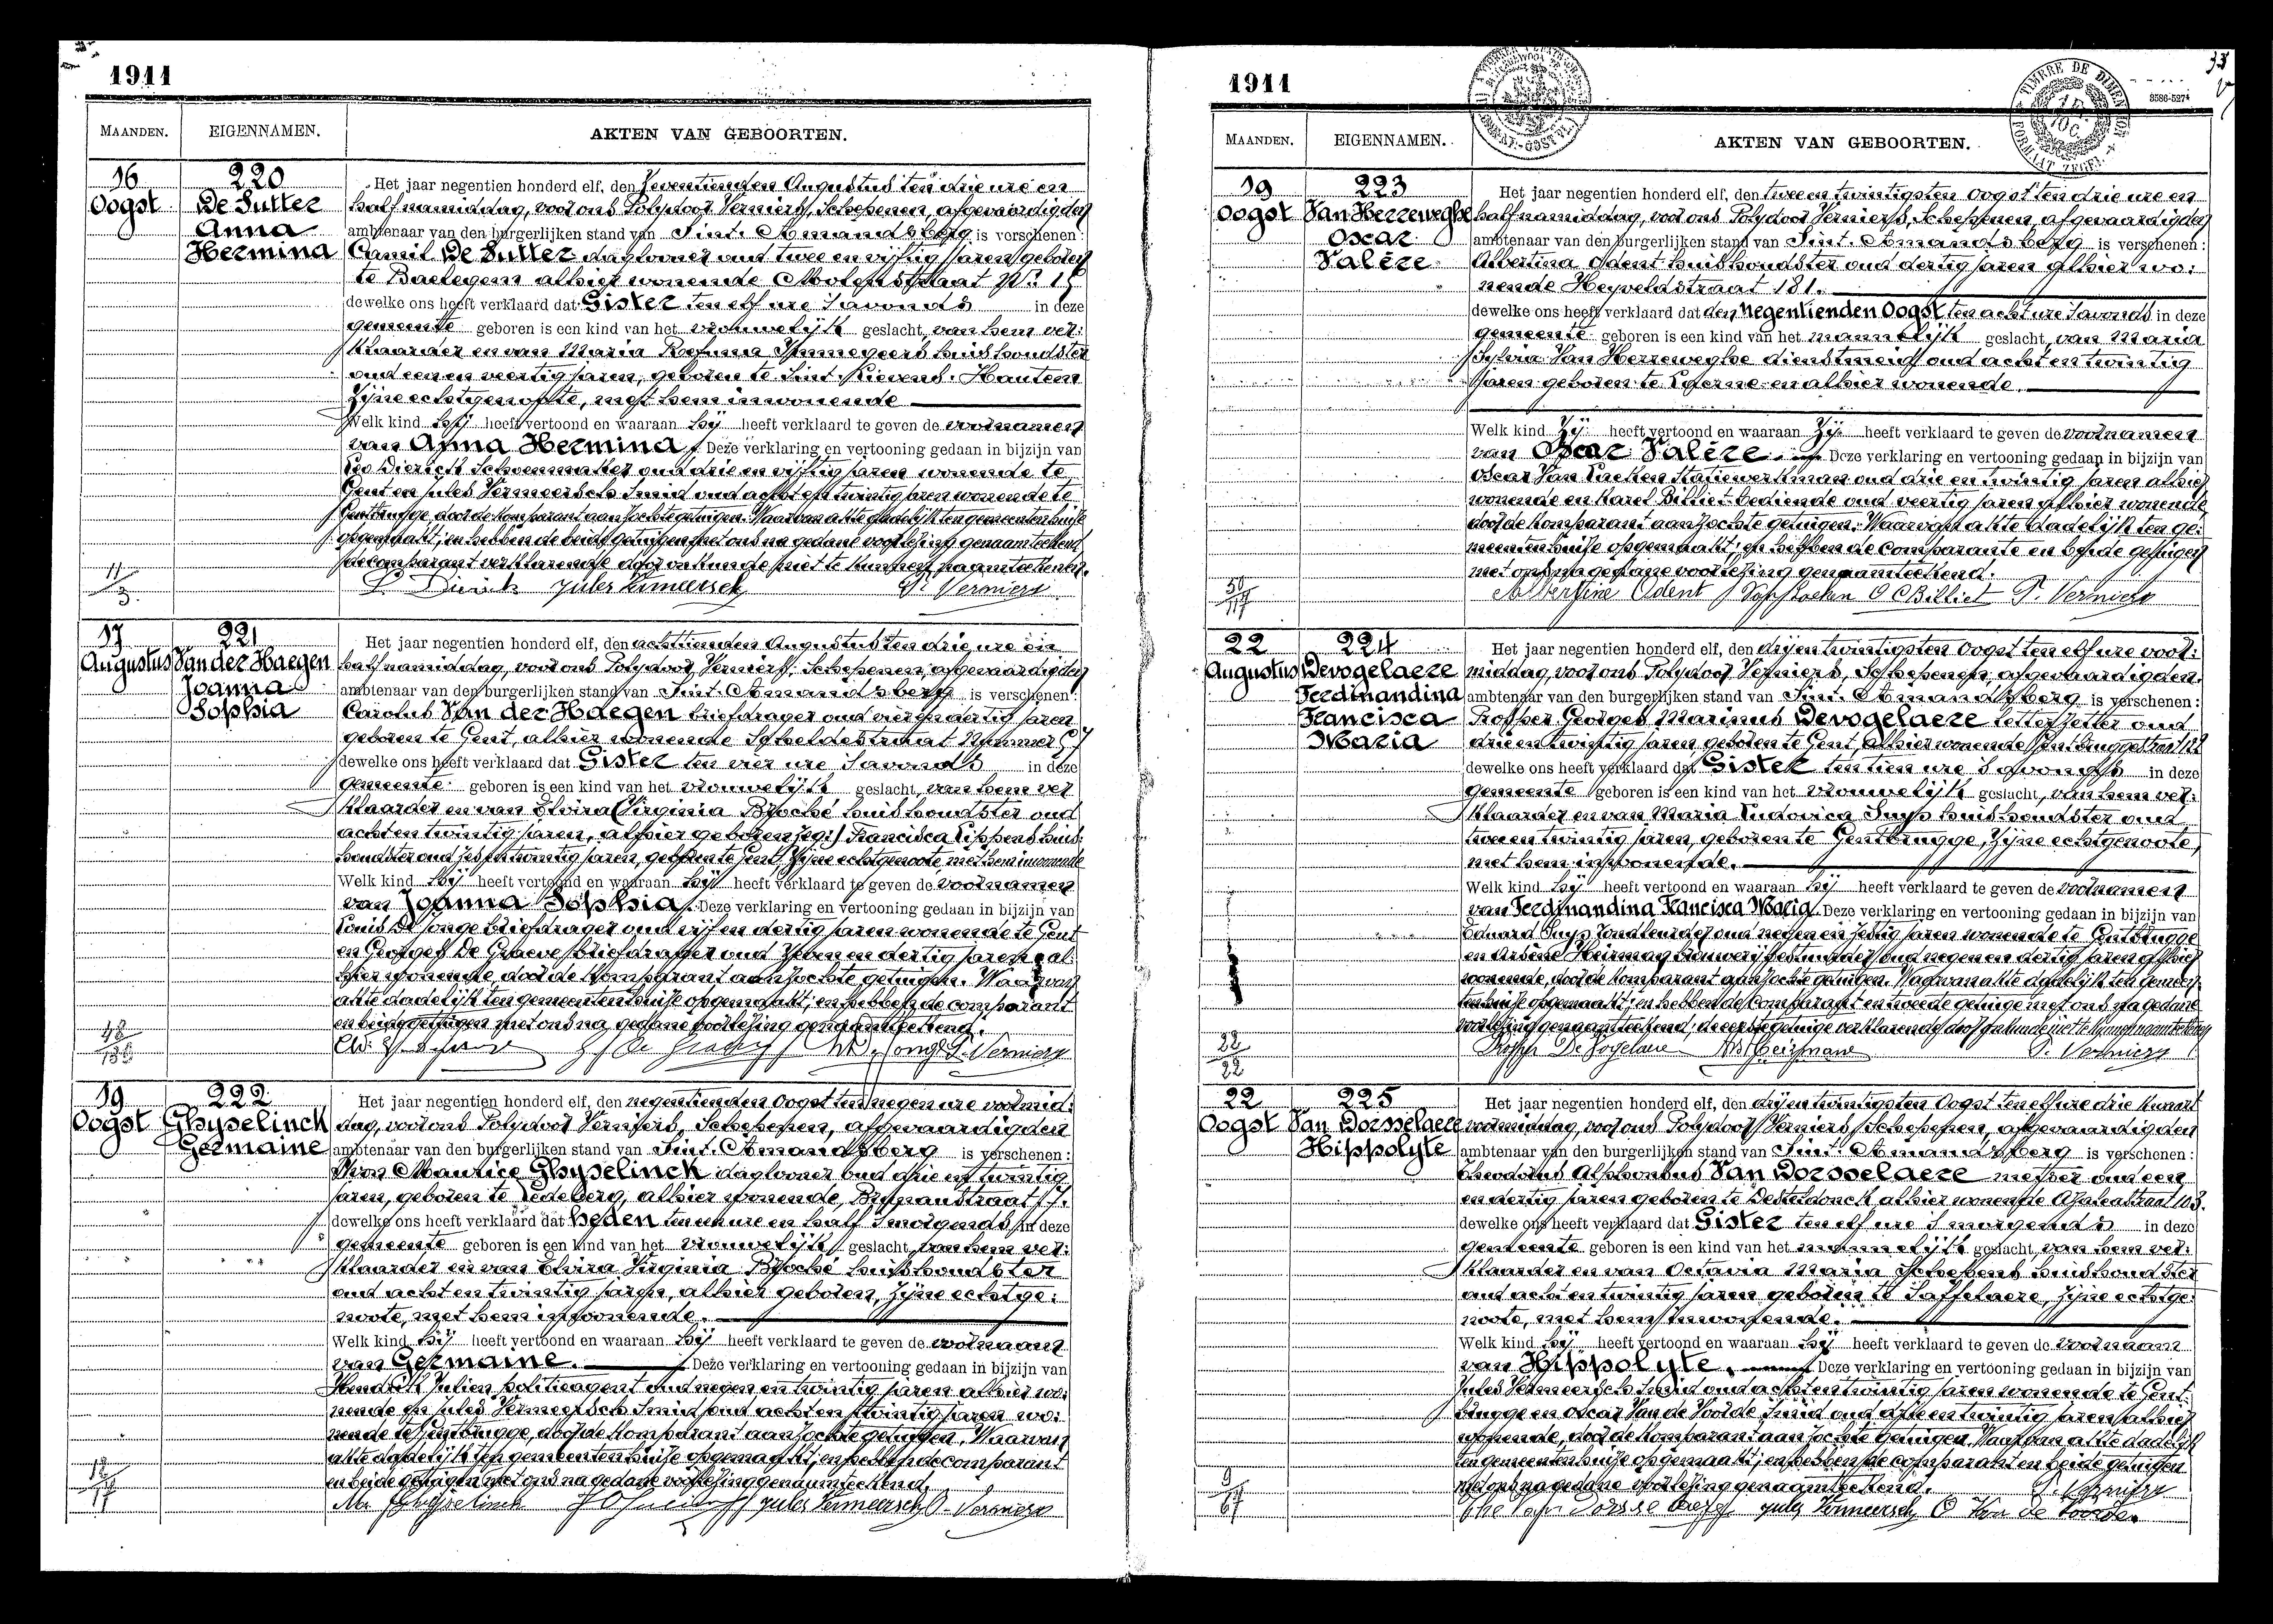 1911
MAANDEN. EIGENNAMEN. AKTEN VAN GEBOORTEN.
16 Oogst
220
De Sutter
Anna
Hermina
Het jaar negentien honderd elf, den Zeventienden Augustus ten drie ure en
half namiddag, voor ons Polydoor Verniers, Schepenen, afgevaardigden
ambtenaar van den burgerlijken stand van Sint. Amandsberg is verschenen:
Camil De Sutter daglooner oud twee en vijftig jaren geboren
te Baelegem alhier wonende Molenstraat Nr. 15
dewelke ons heeft verklaard dat Gister ten elf ure 's avonds in deze
gemeente geboren is een kind van het vrouwelijk geslacht, van hem ver:
klaarder en van Maria Rosina Immegeers huishoudster
oud een en veertig jaren, geboren te Sint. Lievens. Hautem
zijne echtgenoote, met hem inwonende
Welk kind hij heeft vertoond en waaraan hij heeft verklaard te geven de voornamen
van Anna Hermina. Deze verklaring en vertooning gedaan in bijzijn van
Leo Dierick Schoenmaker oud drie en vijftig jaren wonende te
Gent en Jules Vermeersch Smid oud acht en twintig jaren wonende te
Gentbrugge, door de komparant aanzochte getuigen. Waarvan akte dadelijk ten gemeentenhuise
opgemaakt; en hebben de beide getuigen met ons na gedane voorlezing genaamteekend,
de comparant verklarende door onkunde niet te kunnen naamteekenen.
11/3
L. Dierick Jules Vermeersch P. Verniers
17 Augustus
221
Van der Haegen
Joanna
Sophia
Het jaar negentien honderd elf, den achttienden Augustus ten drie ure en
half namiddag, voor ons Polydoor Verniers, Schepenen, afgevaardigden
ambtenaar van den burgerlijken stand van Sint. Amandsberg is verschenen:
Carolus Van der Haegen briefdrager oud vier en dertig jaren
geboren te Gent, alhier wonende Scheldestraat Nummer 57
dewelke ons heeft verklaard dat Gister ten vier ure 's avonds in deze
gemeente geboren is een kind van het vrouwelijk geslacht, van hem ver
klaarder en van Elvira Virginia Broché huishoudster oud
acht en twintig jaren, alhier geboren zeg: Francisca Lippens huis:
houdster oud zes en twintig jaren, geboren te Gent zijne echtgenoote, met hem inwonende
Welk kind hij heeft vertoond en waaraan hij heeft verklaard te geven de voornamen
van Joanna Sophia. Deze verklaring en vertooning gedaan in bijzijn van
Louis De Jonge briefdrager oud vijf en dertig jaren wonende te Gent
en Georges De Graeve briefdrager oud zeven en dertig jaren al:
hier wonende, door de komparant aanzochte getuigen. Waarvan
akte dadelijk ten gemeentenhuise opgemaakt; en hebben de comparant
en beide getuigen met ons na gedane voorlezing genaamteekend.
P. Verniers
19 Oogst
222
Ghyselinck
Germaine
Het jaar negentien honderd elf, den negentienden Oogst ten negen ure voormid:
dag, voor ons Polydoor Verniers, Schepenen, afgevaardigden
ambtenaar van den burgerlijken stand van Sint. Amandsberg is verschenen:
Maurice Ghyselinck daglooner oud drie en twintig
jaren, geboren te Ledeberg, alhier wonende,
dewelke ons heeft verklaard dat heden ten een ure en half 's morgends in deze
gemeente geboren is een kind van het vrouwelijk geslacht, van hem ver:
klaarder en van Elvira Virginia Broché huishoudster
oud acht en twintig jaren, alhier geboren, zijne echtge:
noote, met hem inwonende.
Welk kind hij heeft vertoond en waaraan hij heeft verklaard te geven de voornaam
van Germaine. Deze verklaring en vertooning gedaan in bijzijn van
Hendrik Julien politieagent oud negen en twintig jaren alhier wo:
nende en Jules Vermeersch Smid oud acht en twintig jaren wo:
nende te Gentbrugge, door de komparant aanzochte getuigen. Waarvan
akte dadelijk ten gemeentenhuise opgemaakt; en hebben de comparant
en beide getuigen met ons na gedane voorlezing genaamteekend.
12/17
Ghyselinck Jules Vermeersch P. Verniers
1911
TIMBRE DE DIMENSION
FORMAAT ZEGEL
MAANDEN. EIGENNAMEN. AKTEN VAN GEBOORTEN.
19 Oogst
223
Van Herreweghe
Oscar
Valère
Het jaar negentien honderd elf, den twee en twintigsten Oogst ten drie ure en
half namiddag, voor ons Polydoor Verniers, Schepenen, afgevaardigden
ambtenaar van den burgerlijken stand van Sint. Amandsberg is verschenen:
Albertina Odent huishoudster oud dertig jaren alhier wo:
nende Heyveldstraat 181.
dewelke ons heeft verklaard dat den negentienden Oogst ten acht ure 's avonds in deze
gemeente geboren is een kind van het mannelijk geslacht, van Maria
Sylvia Van Herreweghe dienstmeid oud acht en twintig
jaren geboren te Everne en alhier wonende.
Welk kind Zij heeft vertoond en waaraan Zij heeft verklaard te geven de voornamen
van Oscar Valère. Deze verklaring en vertooning gedaan in bijzijn van
Oscar Van Laeken Statiewerkman oud drie en twintig jaren alhier
wonende en Karel Billiet bediende oud veertig jaren alhier wonende
door de komparant aanzochte getuigen. Waarvan akte dadelijk ten ge:
meentenhuise opgemaakt; en hebben de comparante en beide getuigen
met ons na gedane voorlezing genaamteekend.
Albertine Odent C Billiet P. Verniers
22 Augustus
224
Devogelaere
Ferdinandina
Francisca
Maria
Het jaar negentien honderd elf, den drij en twintigsten Oogst ten elf ure voor:
middag, voor ons Polydoor Verniers, Schepenen, afgevaardigden
ambtenaar van den burgerlijken stand van Sint. Amandsberg is verschenen:
Prosper Georges Marinus Devogelaere letterzetter oud
drie en twintig jaren geboren te Gent, alhier wonende Gentbruggestraat 122
dewelke ons heeft verklaard dat Gister ten tien ure 's avonds in deze
gemeente geboren is een kind van het vrouwelijk geslacht, van hem ver:
klaarder en van Maria Ludovica Suys huishoudster oud
twee en twintig jaren, geboren te Gentbrugge, zijne echtgenoote,
met hem inwonende.
Welk kind hij heeft vertoond en waaraan hij heeft verklaard te geven de voornamen
van Ferdinandina Francisca Maria. Deze verklaring en vertooning gedaan in bijzijn van
Eduard Suys rondleurder oud negen en zestig jaren wonende te Gentbrugge
en Arsène Heirman Brouwerijbestuurder oud negen en dertig jaren alhier
wonende, door de komparant aanzochte getuigen. Waarvan akte dadelijk ten gemeen
tenhuise opgemaakt; en hebben de Comparant en tweede getuige met ons na gedane
voorlezing genaamteekend; de eerste getuige verklarende door onkunde niet te kunnen naamteekenen
22/22
Prosper De Vogelaere Heirman P. Verniers
22 Oogst
225
Van Dorsselaere
Hippolyte
Het jaar negentien honderd elf, den drij en twintigsten Oogst ten elf ure drie kwart
voormiddag, voor ons Polydoor Verniers, Schepenen, afgevaardigden
ambtenaar van den burgerlijken stand van Sint. Amandsberg is verschenen:
Theodorus Alphonsus Van Dorsselaere metser oud een
en dertig jaren geboren te Desteldonck alhier wonende Azaleastraat 103.
dewelke ons heeft verklaard dat Gister ten elf ure 's morgends in deze
gemeente geboren is een kind van het mannelijk geslacht, van hem ver:
klaarder en van Octavia Maria Schepens huishoudster
oud acht en twintig jaren geboren te Saffelaere, zijne echtge:
noote, met hem inwonende.
Welk kind hij heeft vertoond en waaraan hij heeft verklaard te geven de voornaam
van Hippolyte. Deze verklaring en vertooning gedaan in bijzijn van
Jules Vermeersch Smid oud acht en twintig jaren wonende te Gent:
brugge en Oscar Van de Voorde Smid oud drie en twintig jaren alhier
wonende, door de komparant aanzochte getuigen. Waarvan akte dadelijk
ten gemeentenhuise opgemaakt; en hebben de comparant en beide getuigen
met ons na gedane voorlezing genaamteekend. P. Verniers
9/67
Jules Vermeersch O Van de Voorde